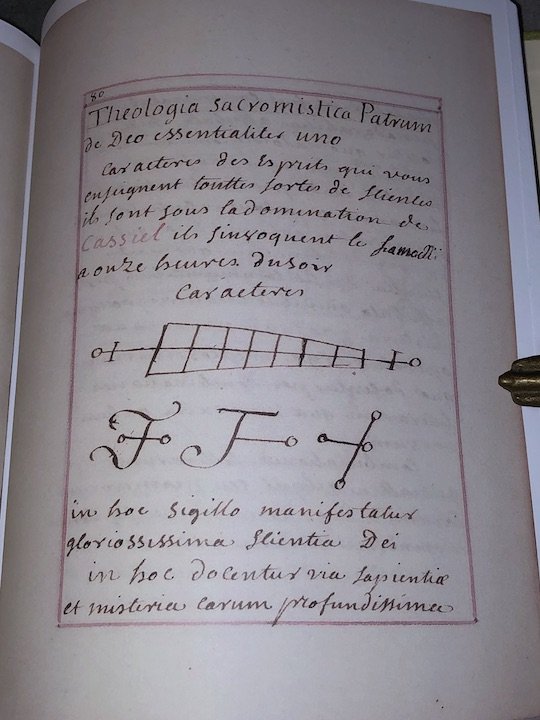 80
Theologia Sacromistica Patrum
de Deo essentialiter uno
Caracteres des Esprits qui vous
enseignent touttes sortes de Sliences
ils sont sous la domination de
Cassiel ils sinvoquent le Samedi
a onze heures du soir
Caracteres
in hoc Sigillo manifestatur
gloriossissima Slientia Dei
in hoc docentur via Sapientiæ
et misteria earum profundissima